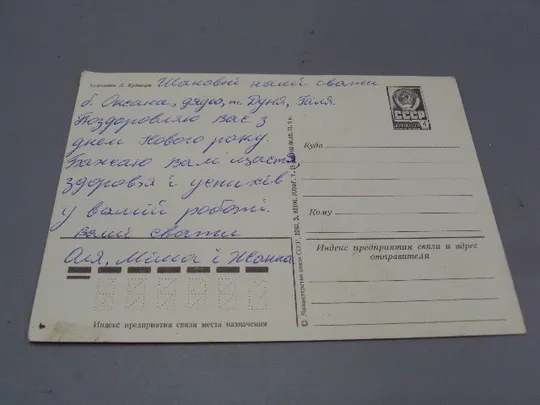 Художник Л. Кузнецов
Шановні наші свати
б. Оксана, дядьо, т. Дуня, Галя.
Поздоровляю Вас з
днем Нового року.
Бажаю вам щастя
здоров'я і успіхів
у вашій роботі.
ваші свати
Оля, Міша і Жанна
СССР
Куда
Кому
Индекс предприятия связи и адрес
отправителя
Индекс предприятия связи места назначения
© Министерство связи СССР, 1980.